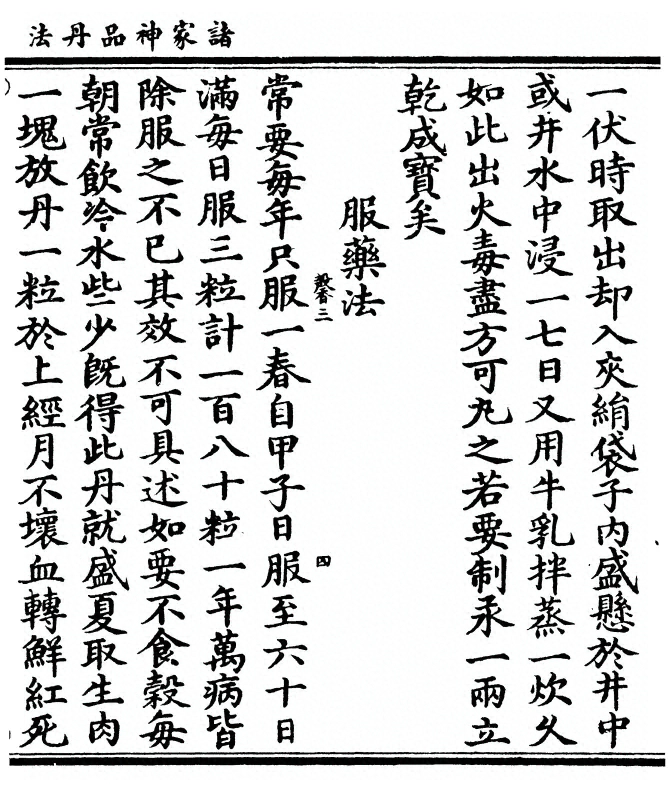 諸家神品丹法
一伏時取出却入夾絹袋子内盛懸於井中
或井水中浸一七日又用牛乳拌蒸一炊久
如此出火毒盡方可丸之若要制汞一兩立
乾成寶矣
服藥法
常要每年只服一春自甲子日服至六十日
滿每日服三粒計一百八十粒一年萬病皆
除服之不已其效不可具述如要不食穀每
朝常飲冷水些少既得此丹就盛夏取生肉
一塊放丹一粒於上經月不壞血轉鮮紅死
四